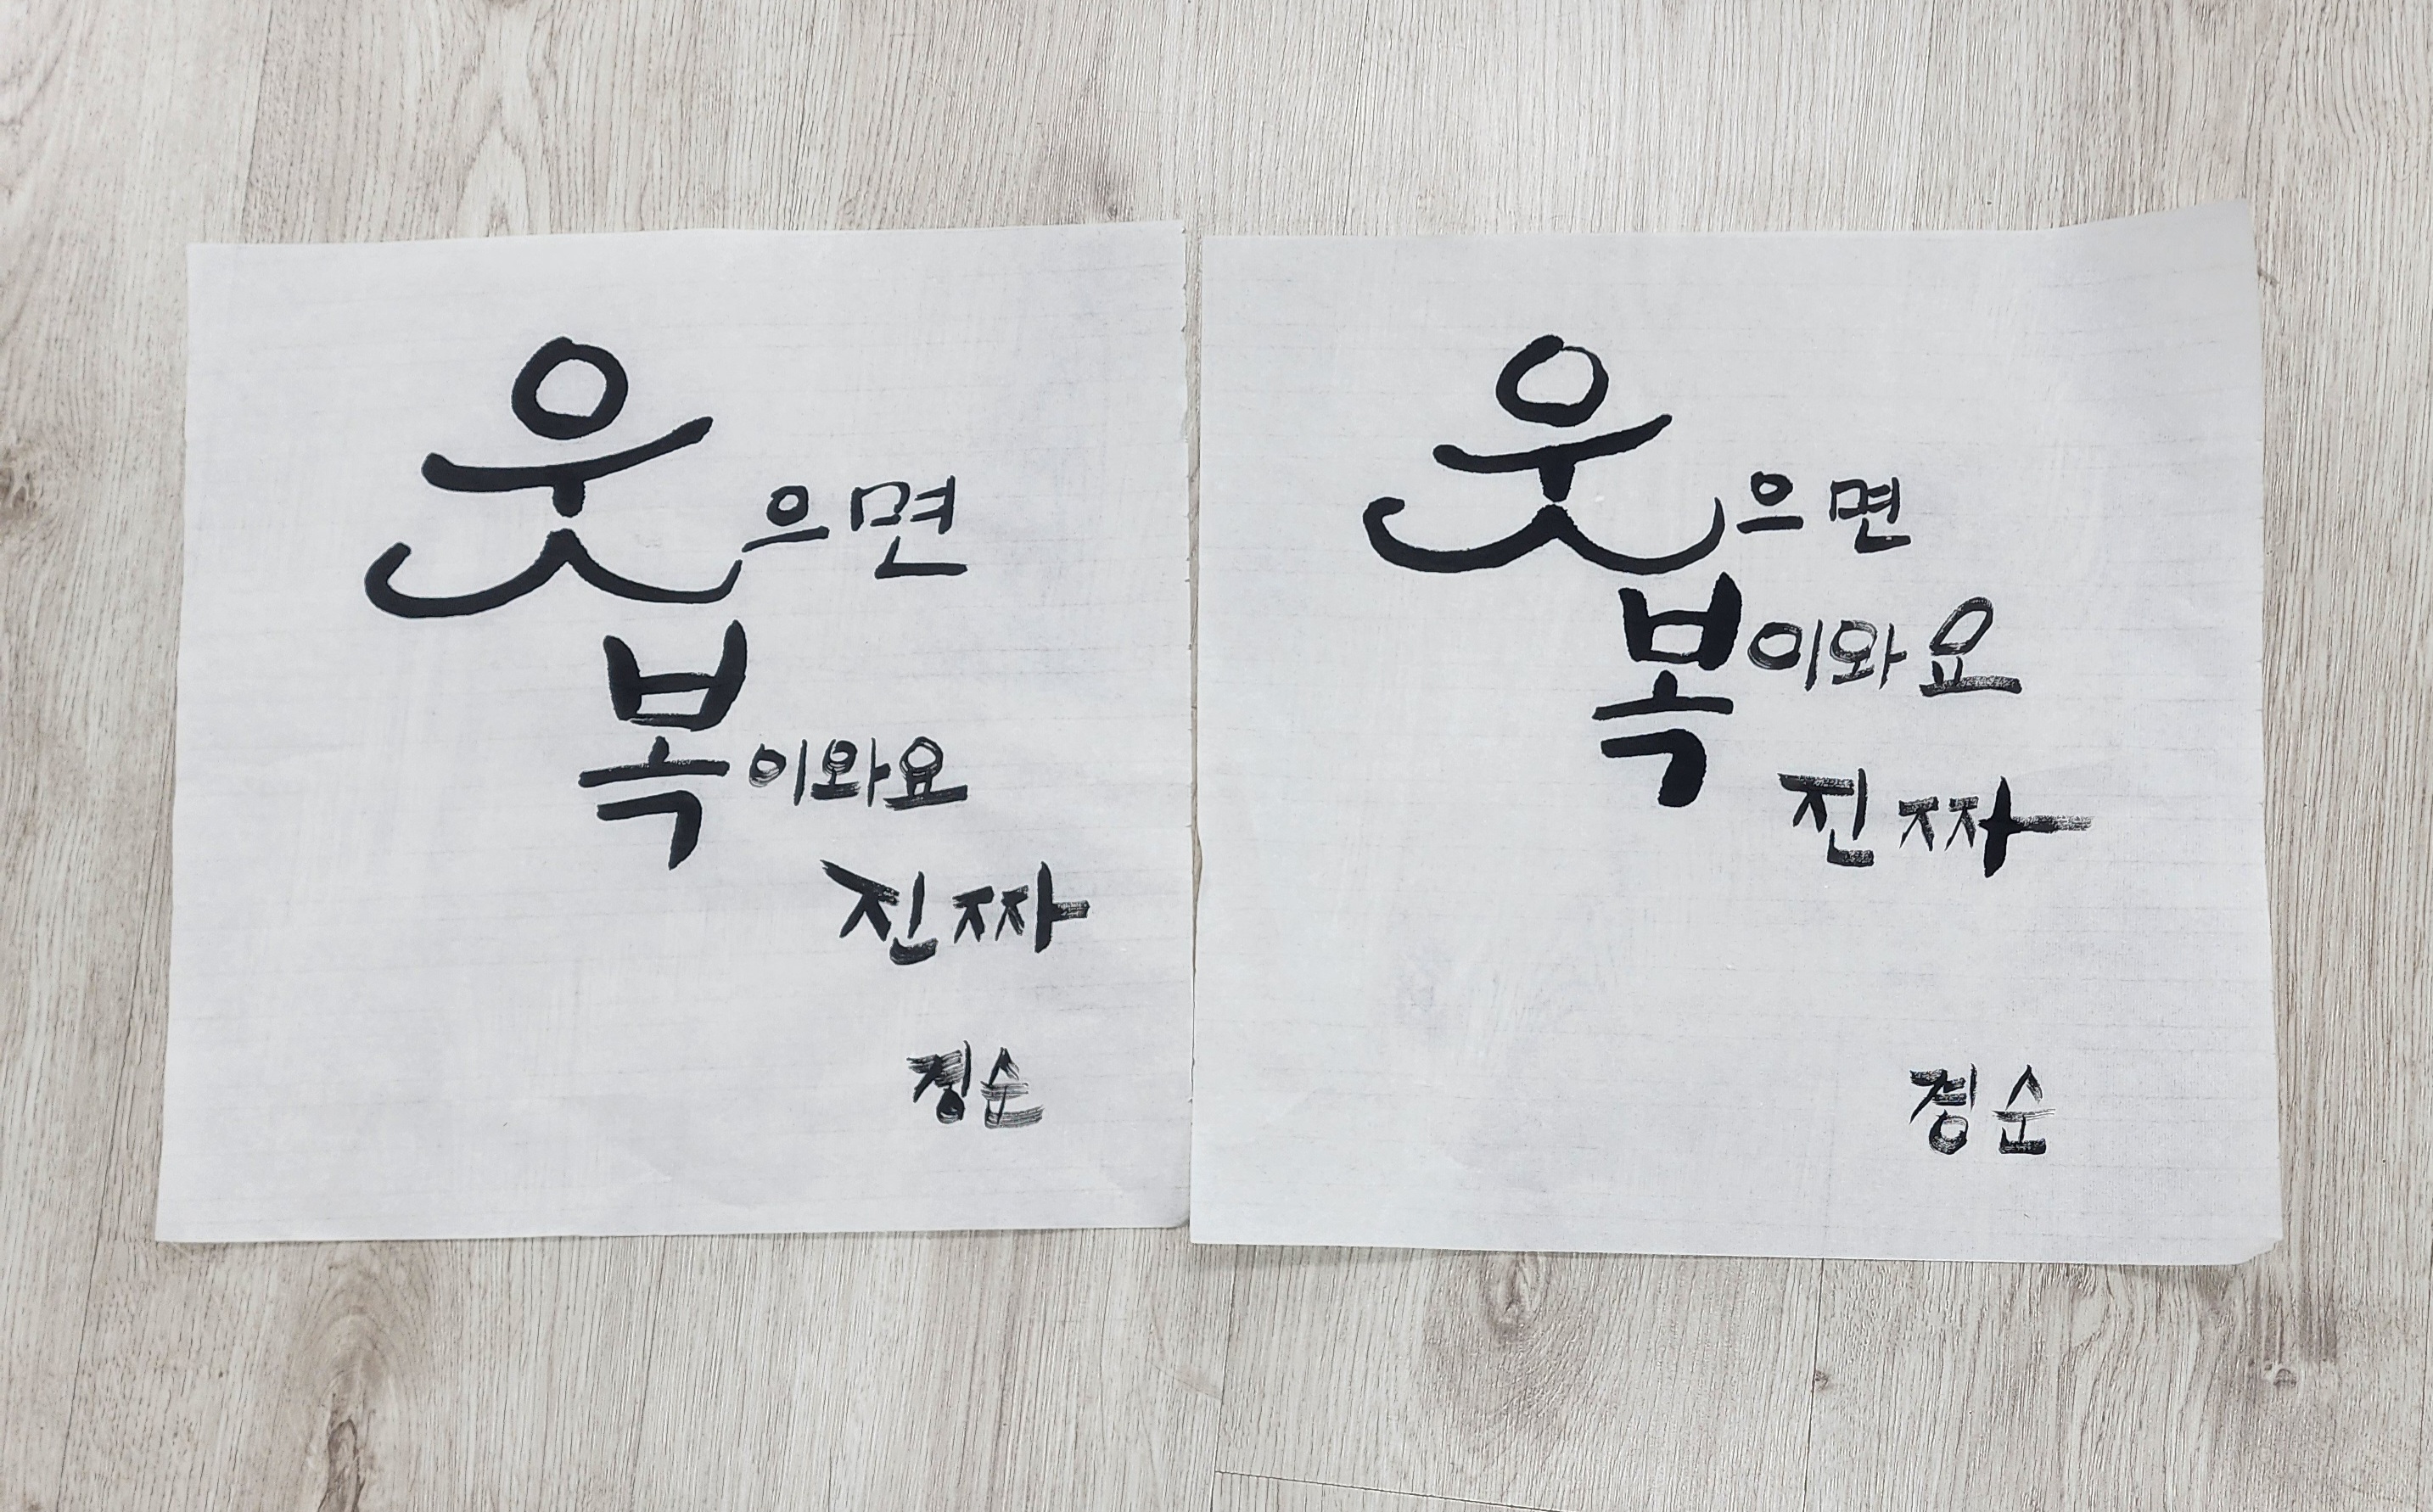 웃으면
복이와요
진짜
경순
웃으면
복이와요
진짜
경순